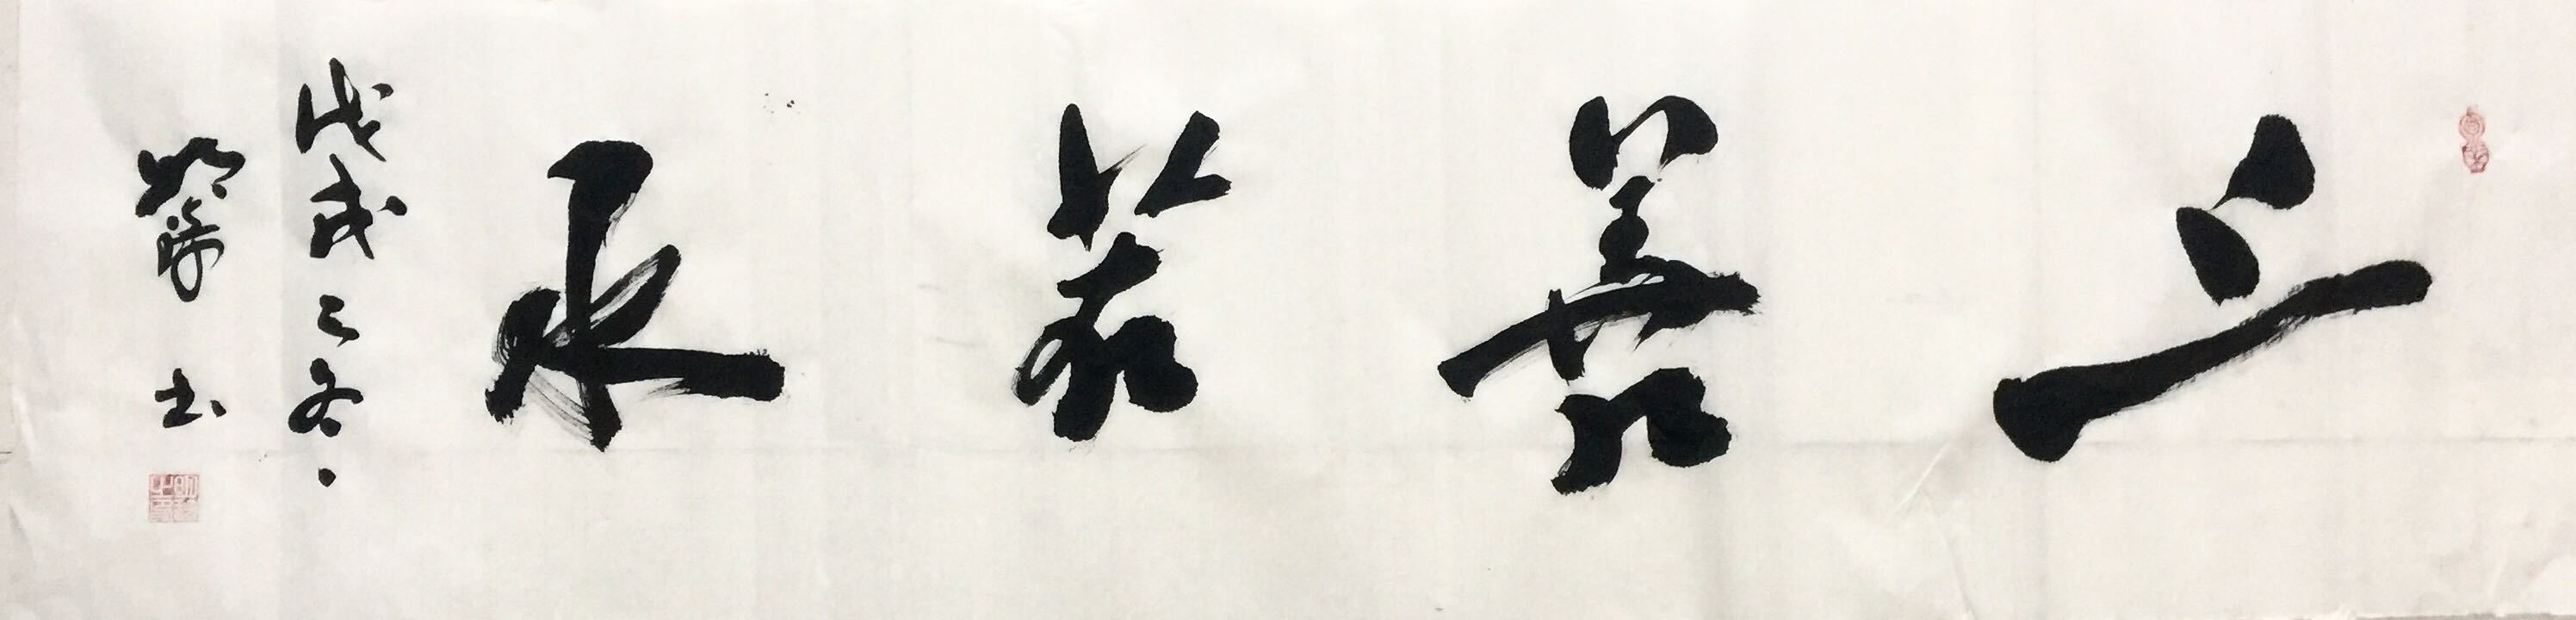 上善若水
戊戌之冬
明
书